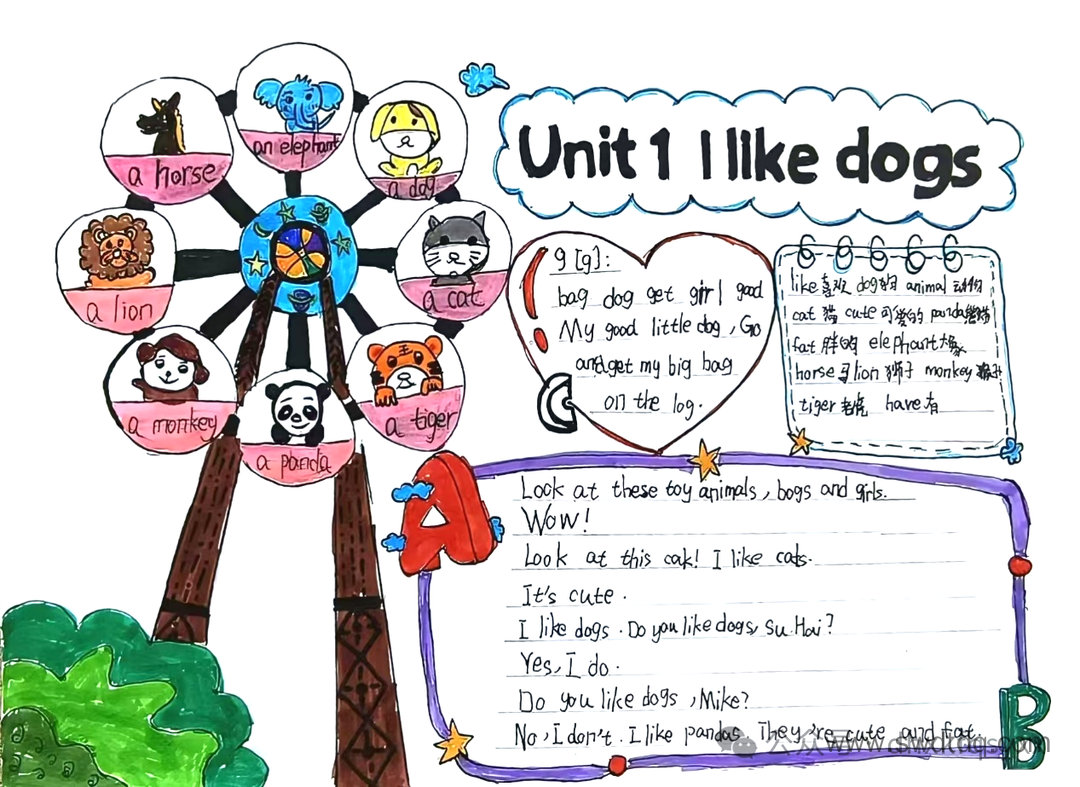 Unit 1 I like dogs
an elephant
a horse
a dog
a lion
a cat
a monkey
a tiger
a panda
g [g]:
bag dog get girl good
My good little dog, Go
and get my big bag
on the log.
like喜欢 dog狗 animal 动物
cat 猫 cute 可爱的 panda熊猫
fat 胖的 elephant大象
horse 马 lion 狮子 monkey 猴子
tiger 老虎 have 有
A
Look at these toy animals, bogs and girls.
Wow!
Look at this cak! I like cats.
It's cute.
I like dogs. Do you like dogs, Su Hai?
Yes, I do.
Do you like dogs, Mike?
No, I don't. I like pandas. They're cute and fat.
B